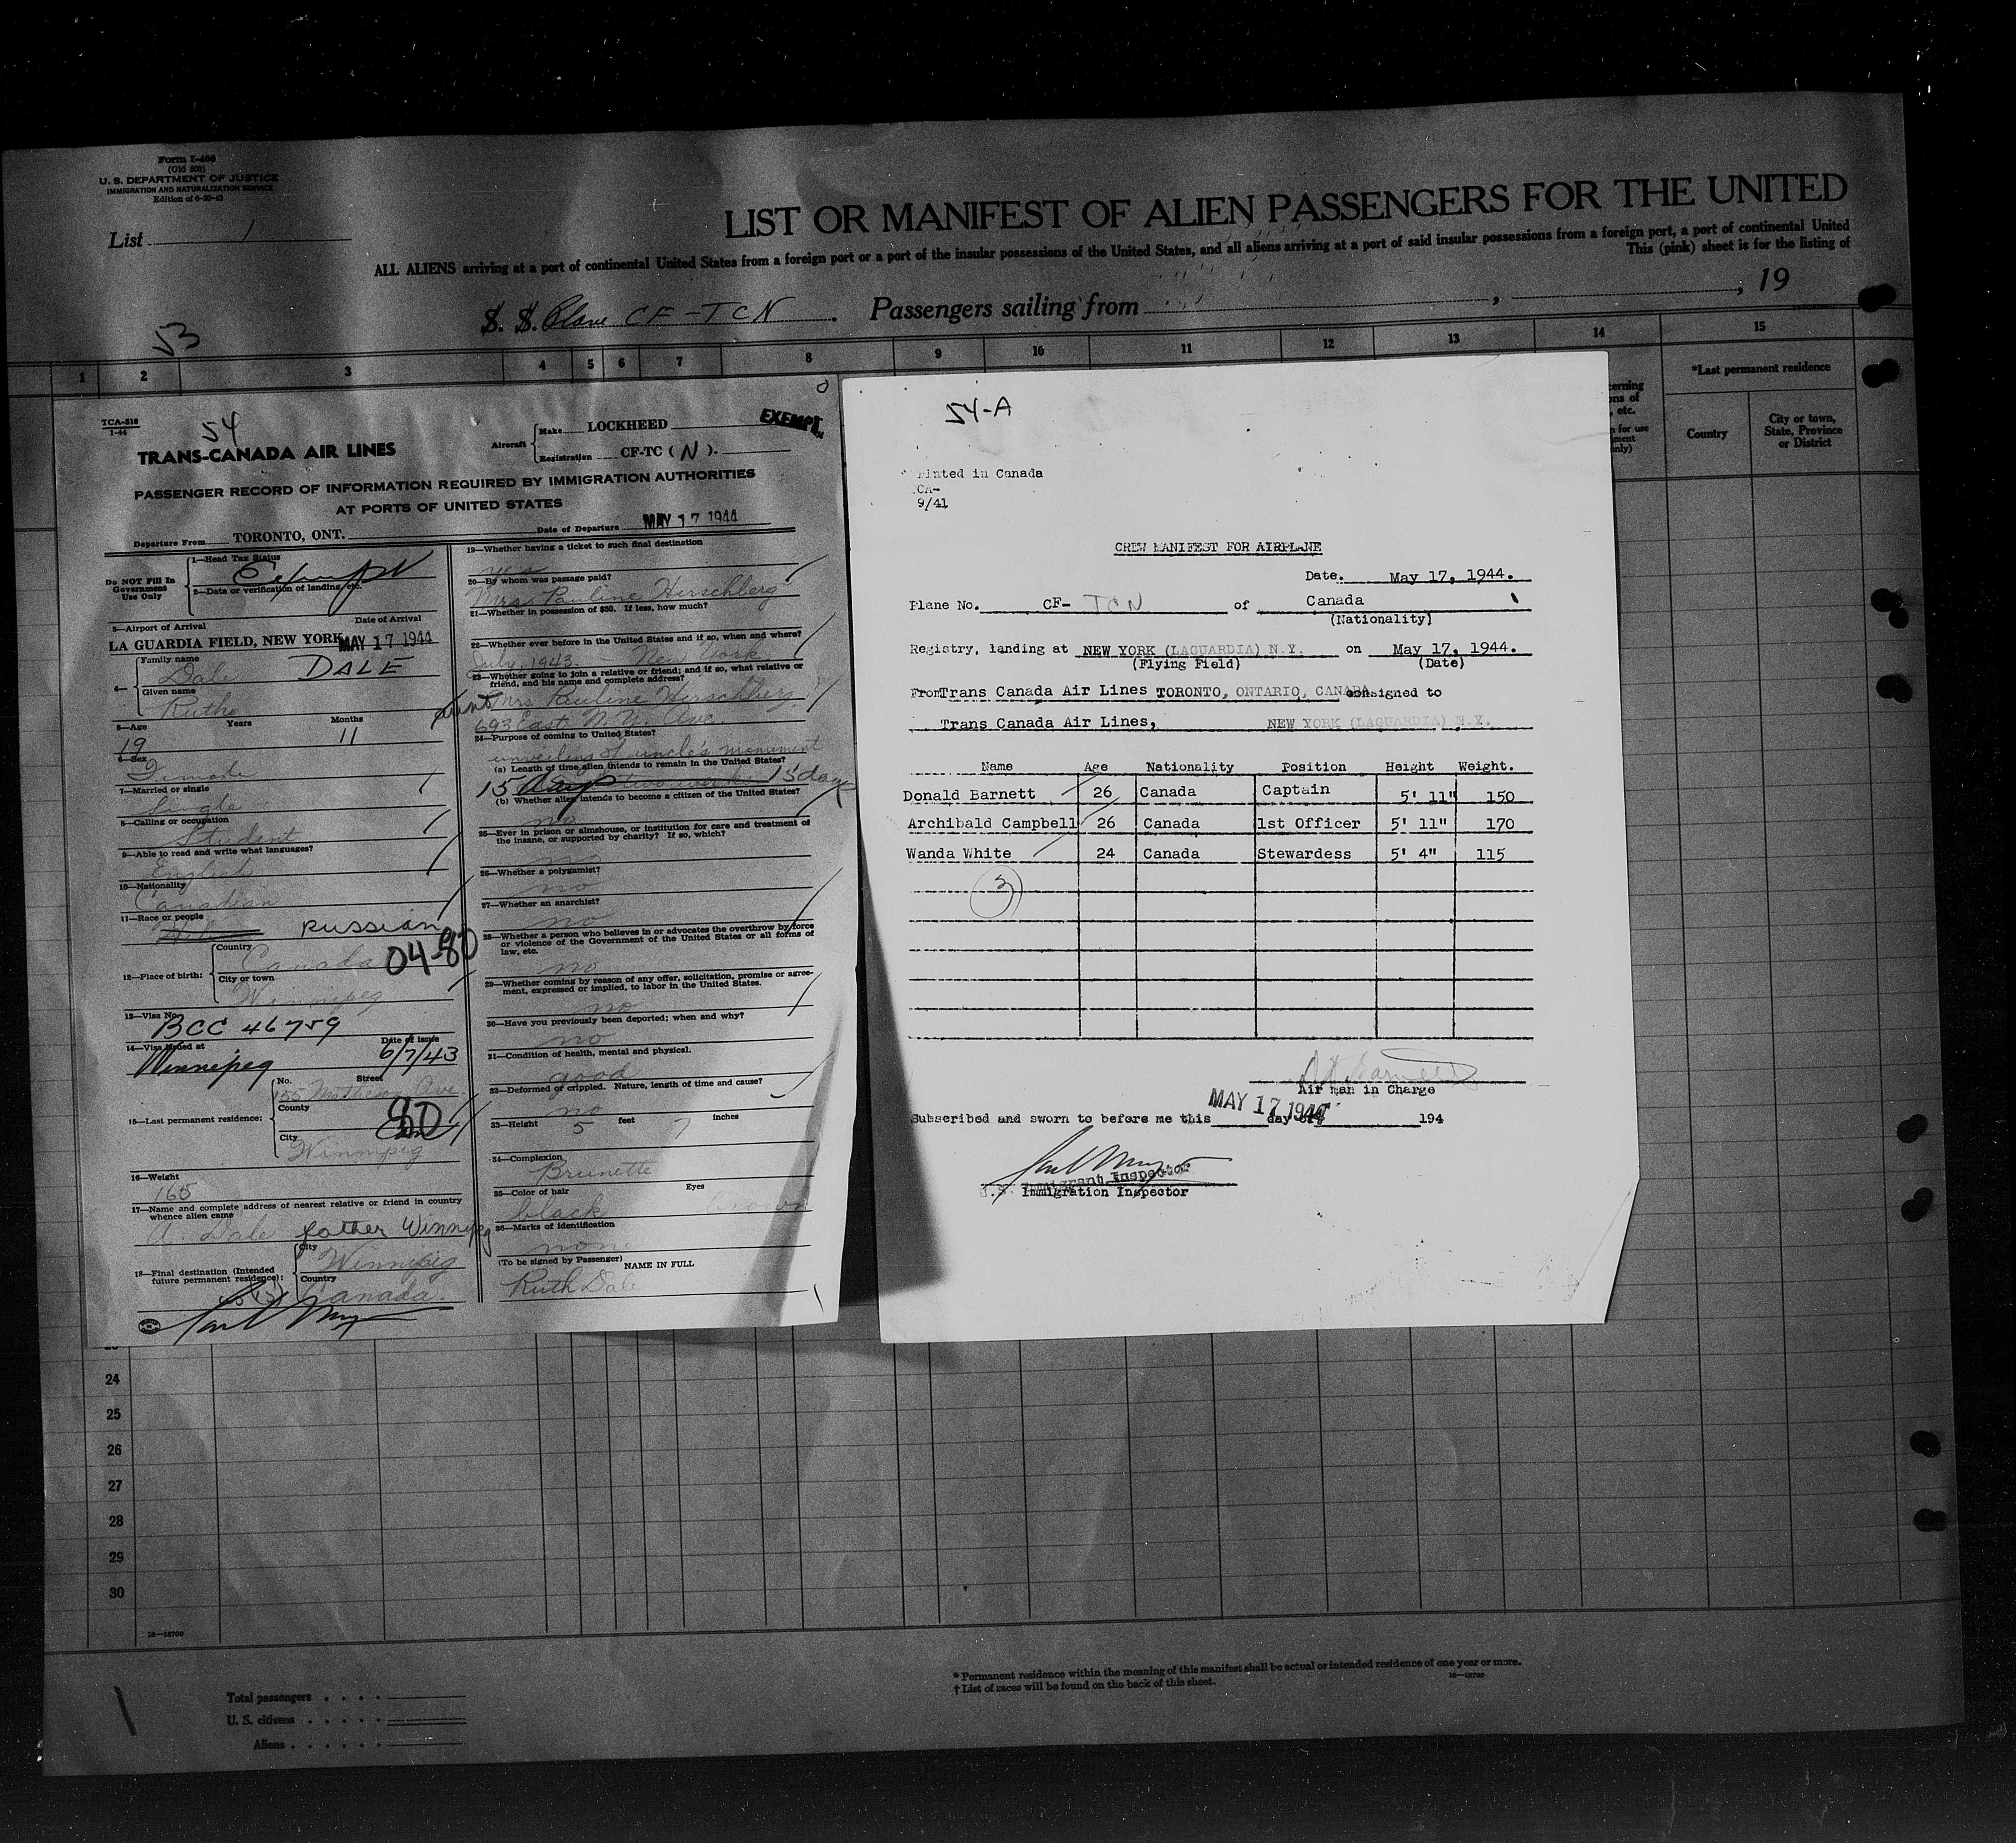 Form I-400
(Old 500)
U. S. DEPARTMENT OF JUSTICE
IMMIGRATION AND NATURALIZATION SERVICE
Edition of 6-20-42
List 1
LIST OR MANIFEST OF ALIEN PASSENGERS FOR THE UNITED
ALL ALIENS arriving at a port of continental United States from a foreign port or a port of the insular possessions of the United States, and all aliens arriving at a port of said insular possessions from a foreign port, a port of continental United
This (pink) sheet is for the listing of
53
S. S. Plane CF-TCN . Passengers sailing from , , 19
1 2 3 4 5 6 7 8 9 10 11 12 13 14 15
*Last permanent residence
Country
City or town,
State, Province
or District
TCA-518
1-44
54
TRANS-CANADA AIR LINES
Aircraft Make LOCKHEED
Registration CF-TC (N).
EXEMPT
PASSENGER RECORD OF INFORMATION REQUIRED BY IMMIGRATION AUTHORITIES
AT PORTS OF UNITED STATES
Departure From TORONTO, ONT. Date of Departure MAY 17 1944
Do NOT Fill In
Government
Use Only
1—Head Tax Status
Exempt
2—Data or verification of landing, etc.
3—Airport of Arrival Date of Arrival
LA GUARDIA FIELD, NEW YORK MAY 17 1944
4— Family name
Dale DALE
Given name
Ruth
5—Age Years Months
19 11
6—Sex
Female
7—Married or single
Single
8—Calling or occupation
Student
9—Able to read and write what languages?
English
10—Nationality
Canadian
11—Race or people
RUSSIAN
12—Place of birth: Country
Canada 04-80
City or town
Winnipeg
13—Visa No.
BCC 46759
14—Visa issued at Date of issue
Winnipeg 6/7/43
15—Last permanent residence: No. Street
Ave
County
80
City
Winnipeg
16—Weight
165
17—Name and complete address of nearest relative or friend in country
whence alien came
A. Dale father Winnipeg
18—Final destination (Intended
future permanent residence):
City
Winnipeg
Country
Canada.
19—Whether having a ticket to such final destination
yes
20—By whom was passage paid?
Mrs. Pauline Herschberg
21—Whether in possession of $50. If less, how much?
22—Whether ever before in the United States and if so, when and where?
July, 1943. New York
23—Whether going to join a relative or friend; and if so, what relative or
friend, and his name and complete address?
aunt Mrs. Pauline Herschberg
693 East N. Y. Ave.
24—Purpose of coming to United States?
unveiling of uncle's monument
(a) Length of time alien intends to remain in the United States?
15 days two weeks 15 days
(b) Whether alien intends to become a citizen of the United States?
no
25—Ever in prison or almshouse, or institution for care and treatment of
the insane, or supported by charity? If so, which?
no
26—Whether a polygamist?
no
27—Whether an anarchist?
no
28—Whether a person who believes in or advocates the overthrow by force
or violence of the Government of the United States or all forms of
law, etc.
no
29—Whether coming by reason of any offer, solicitation, promise or agree-
ment, expressed or implied, to labor in the United States.
no
30—Have you previously been deported; when and why?
no
31—Condition of health, mental and physical.
good
32—Deformed or crippled. Nature, length of time and cause?
no
33—Height 5 feet 7 inches
34—Complexion
Brunette
35—Color of hair Eyes
black brown
36—Marks of identification
none
(To be signed by Passenger) NAME IN FULL
Ruth Dale
54-A
Printed in Canada
9/41
CREW MANIFEST FOR AIRPLANE
Date. May 17, 1944.
Plane No. CF- TCN of Canada
(Nationality)
Registry, landing at NEW YORK (LAGUARDIA) N.Y. on May 17, 1944.
(Flying Field) (Date)
From Trans Canada Air Lines TORONTO, ONTARIO, CANADA consigned to
Trans Canada Air Lines, NEW YORK (LAGUARDIA) N.Y.
Name Age Nationality Position Height Weight.
Donald Barnett 26 Canada Captain 5' 11" 150
Archibald Campbell 26 Canada 1st Officer 5' 11" 170
Wanda White 24 Canada Stewardess 5' 4" 115
3
Air Man in Charge
Subscribed and sworn to before me this MAY 17 1944 day of 194
Immigrant Inspector
U.S. Immigration Inspector
24
25
26
27
28
29
30
16—18700
* Permanent residence within the meaning of this manifest shall be actual or intended residence of one year or more.
† List of races will be found on the back of this sheet.
16—18700
Total passengers
U. S. citizens
Aliens